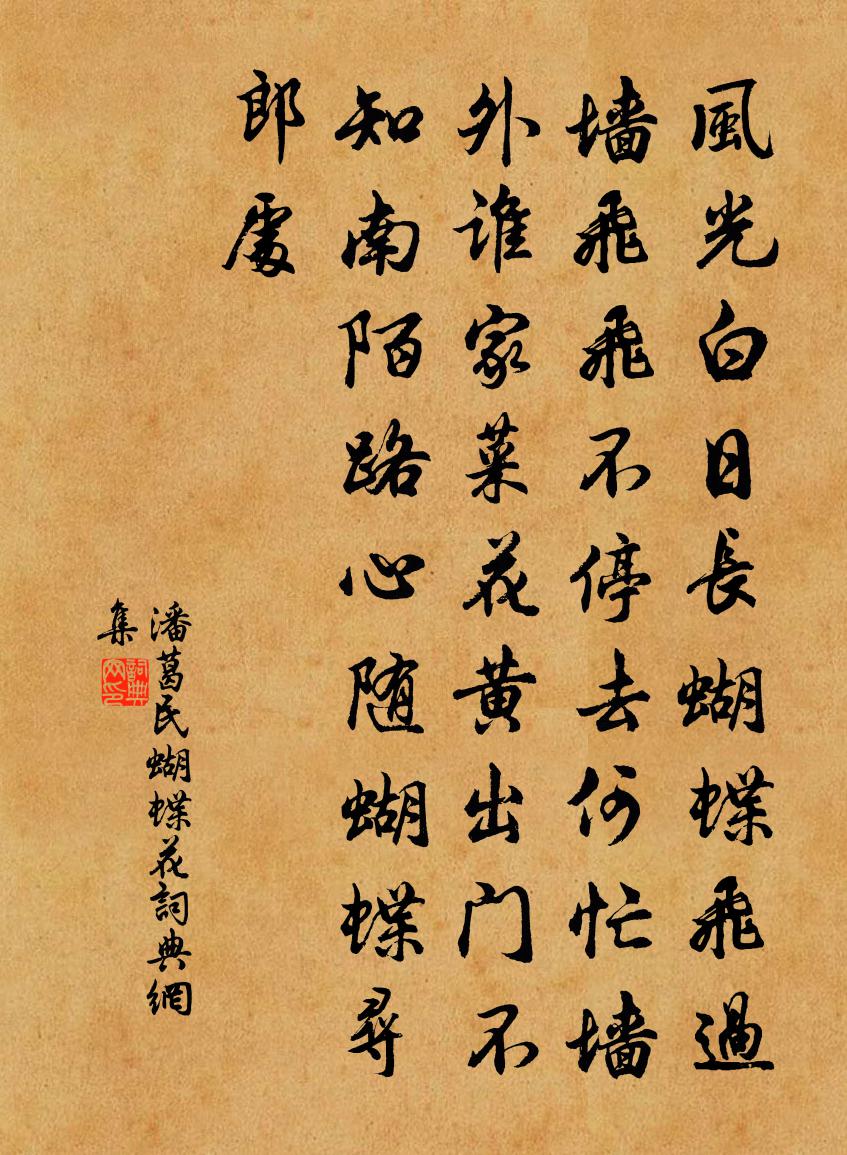 風光白日長蝴蝶飛過
墙飛飛不停去何忙墙
外谁家菜花黄出门不
知南陌路心随蝴蝶尋
郎處
潘葛民蝴蝶花詞典網
集
詞典
网印